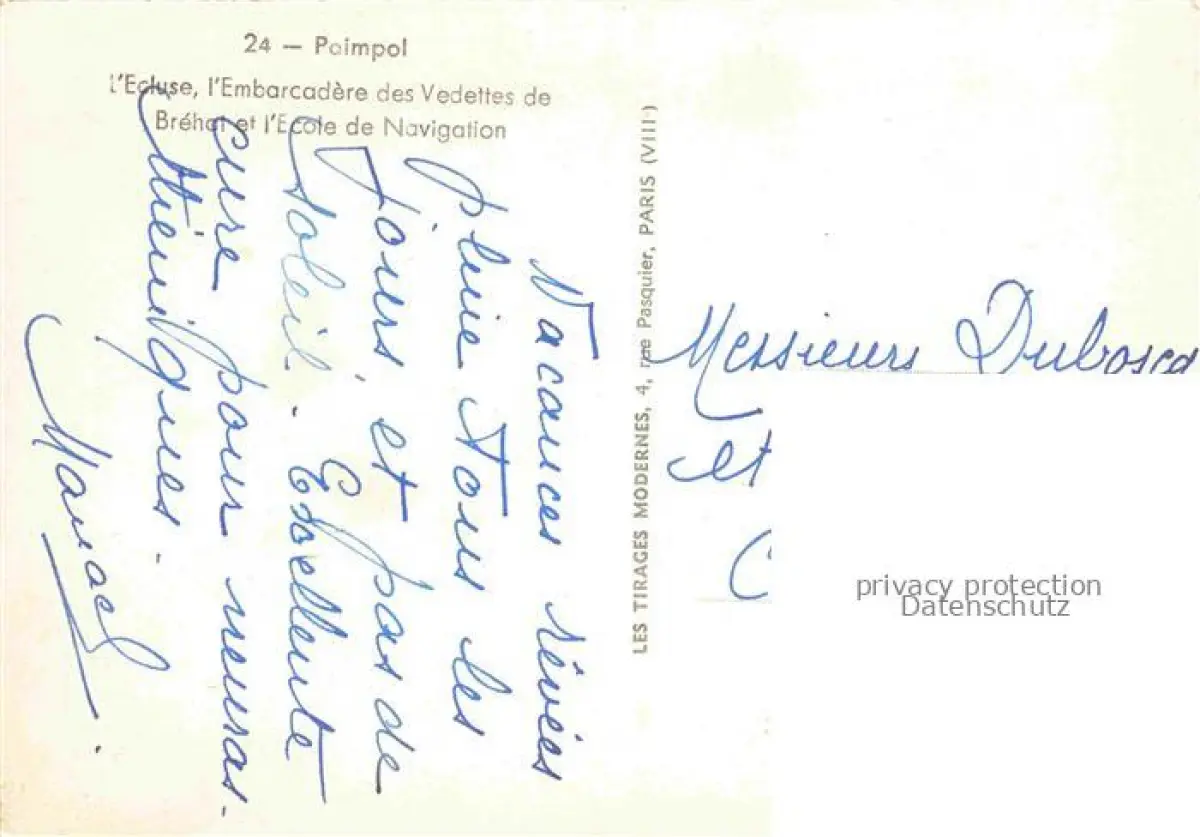 24 — Paimpol
l'Ecluse, l'Embarcadère des Vedettes de
Bréhat et l'Ecole de Navigation
Vacances rêvées
pluie tous les
jours, et pas de
soleil. Excellente
cure pour neuras-
théniques.
LES TIRAGES MODERNES, 4, rue Pasquier, PARIS (VIII)
Messieurs
et
privacy protection
Datenschutz